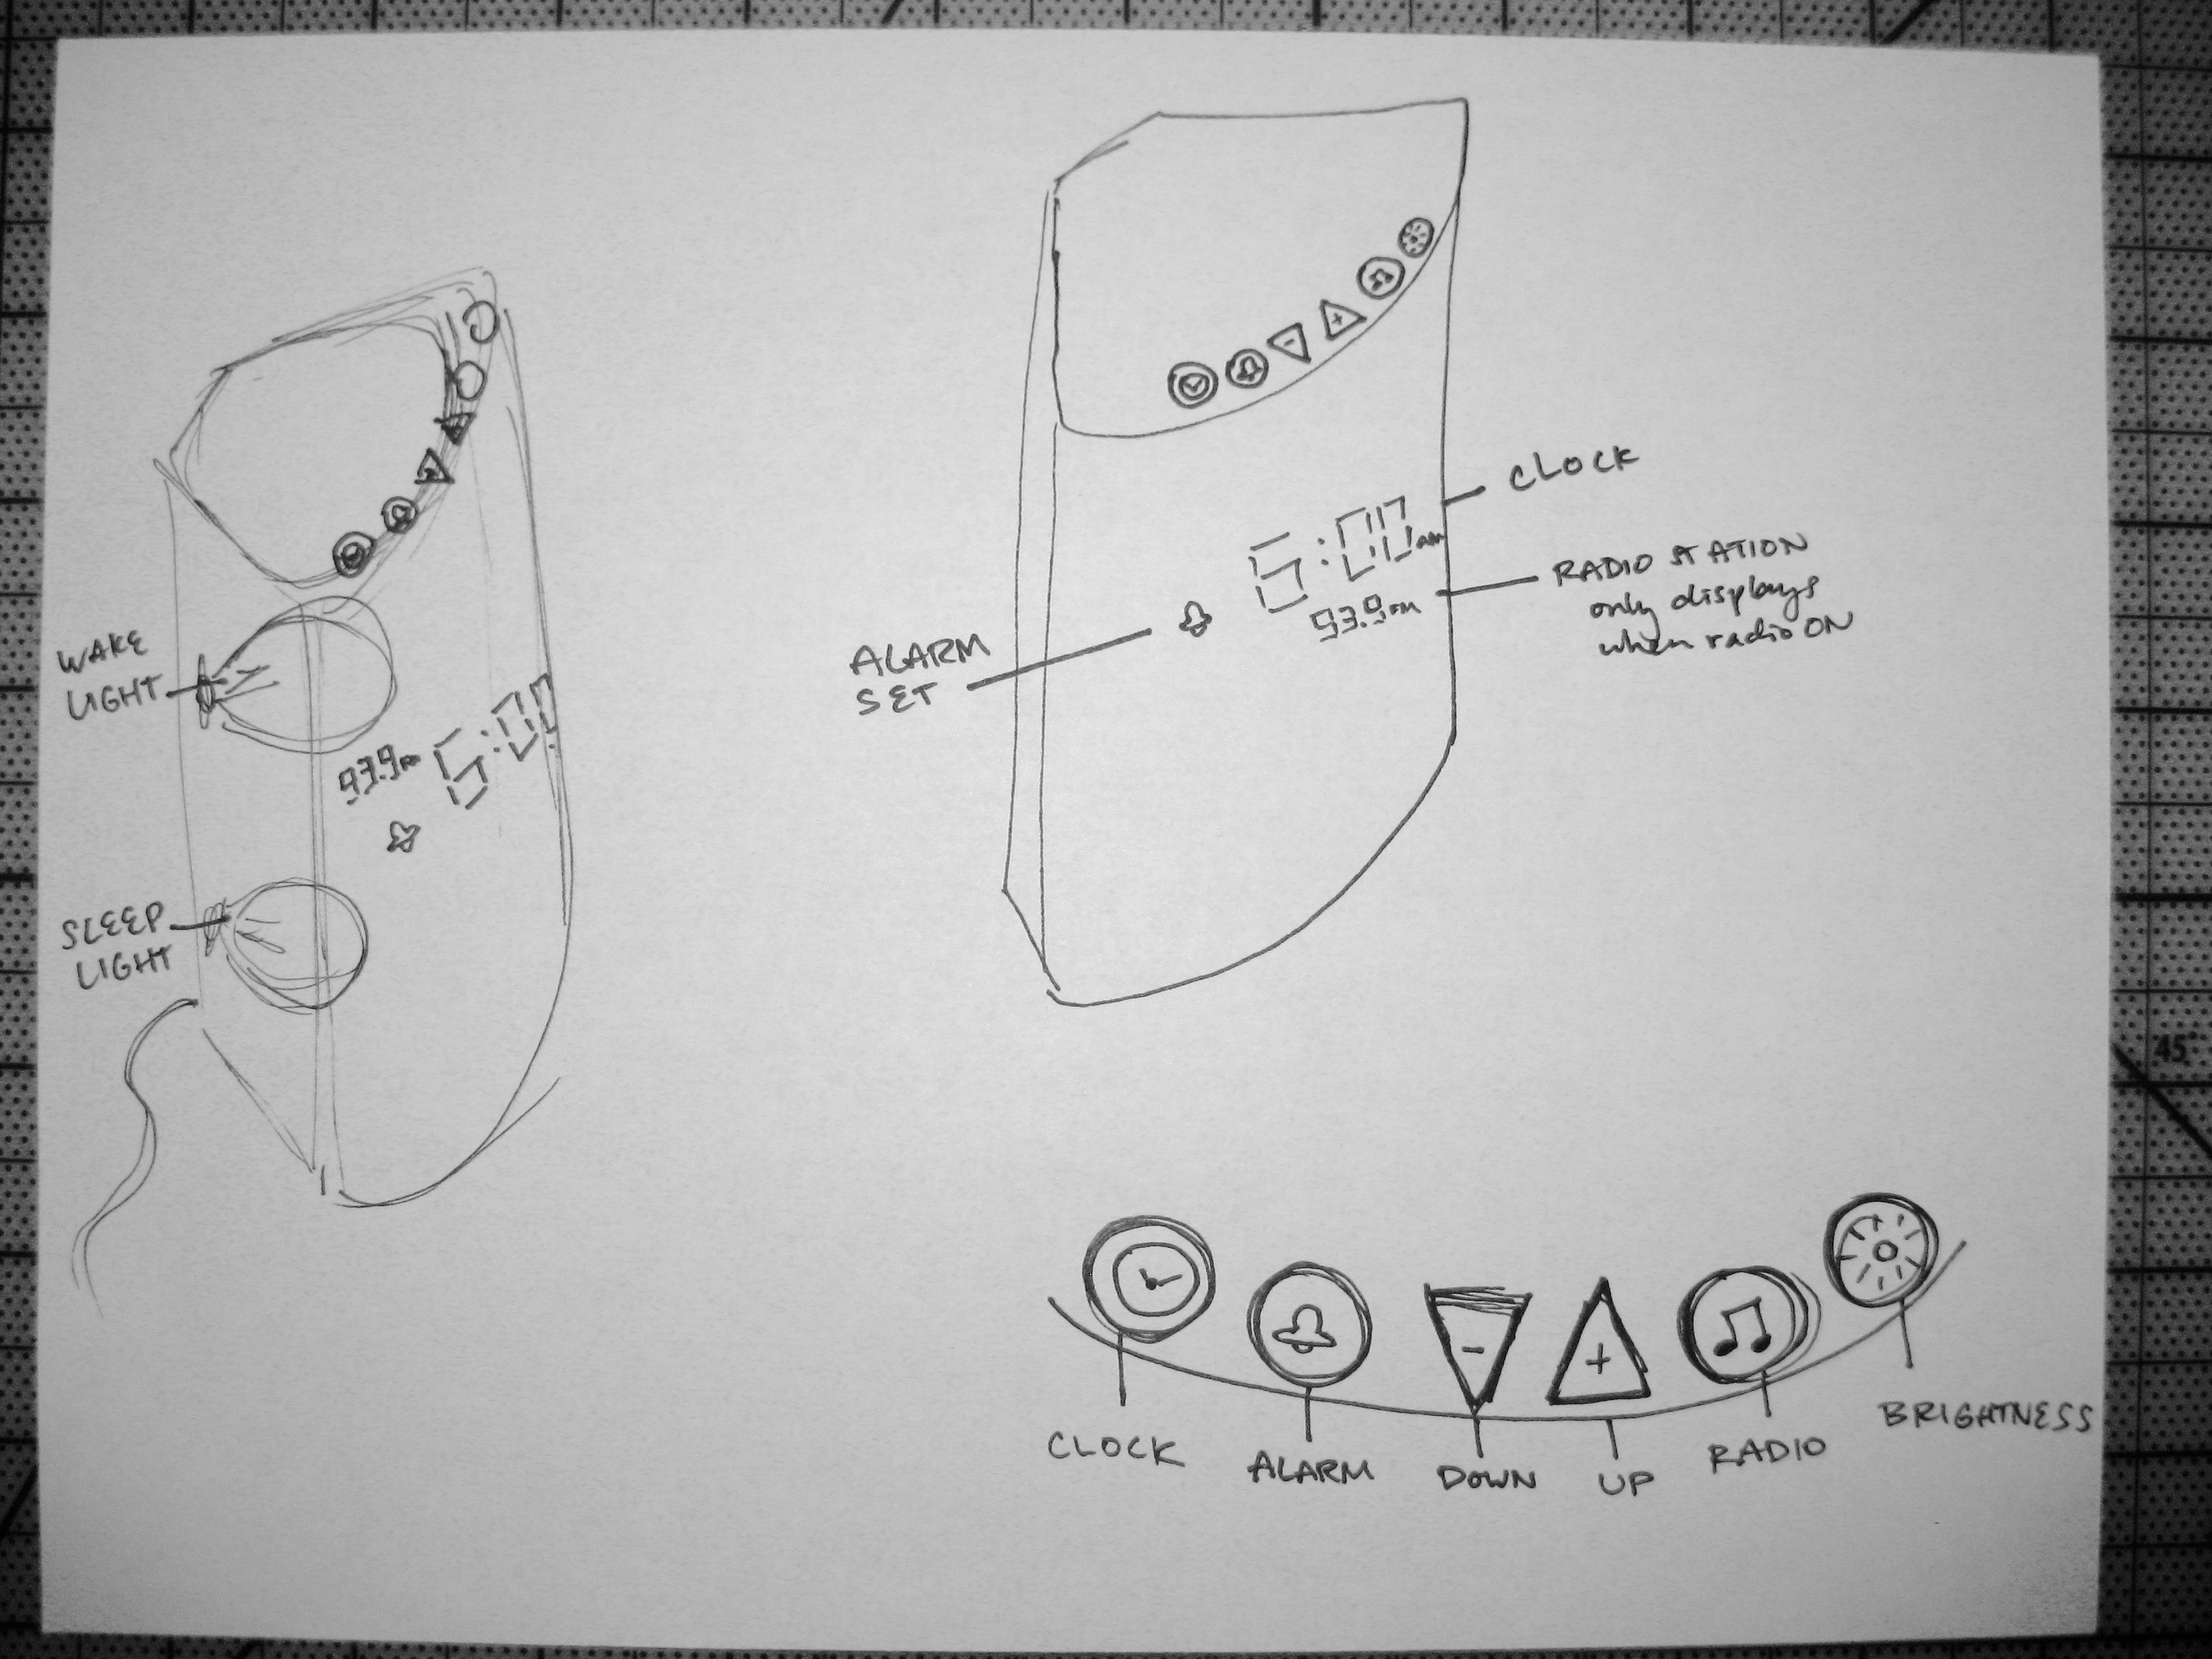 WAKE
LIGHT
93.9FM
6:00
SLEEP
LIGHT
CLOCK
6:00am
RADIO STATION
only displays
when radio ON
93.9FM
ALARM
SET
-
+
-
+
CLOCK
ALARM
DOWN
UP
RADIO
BRIGHTNESS
45°